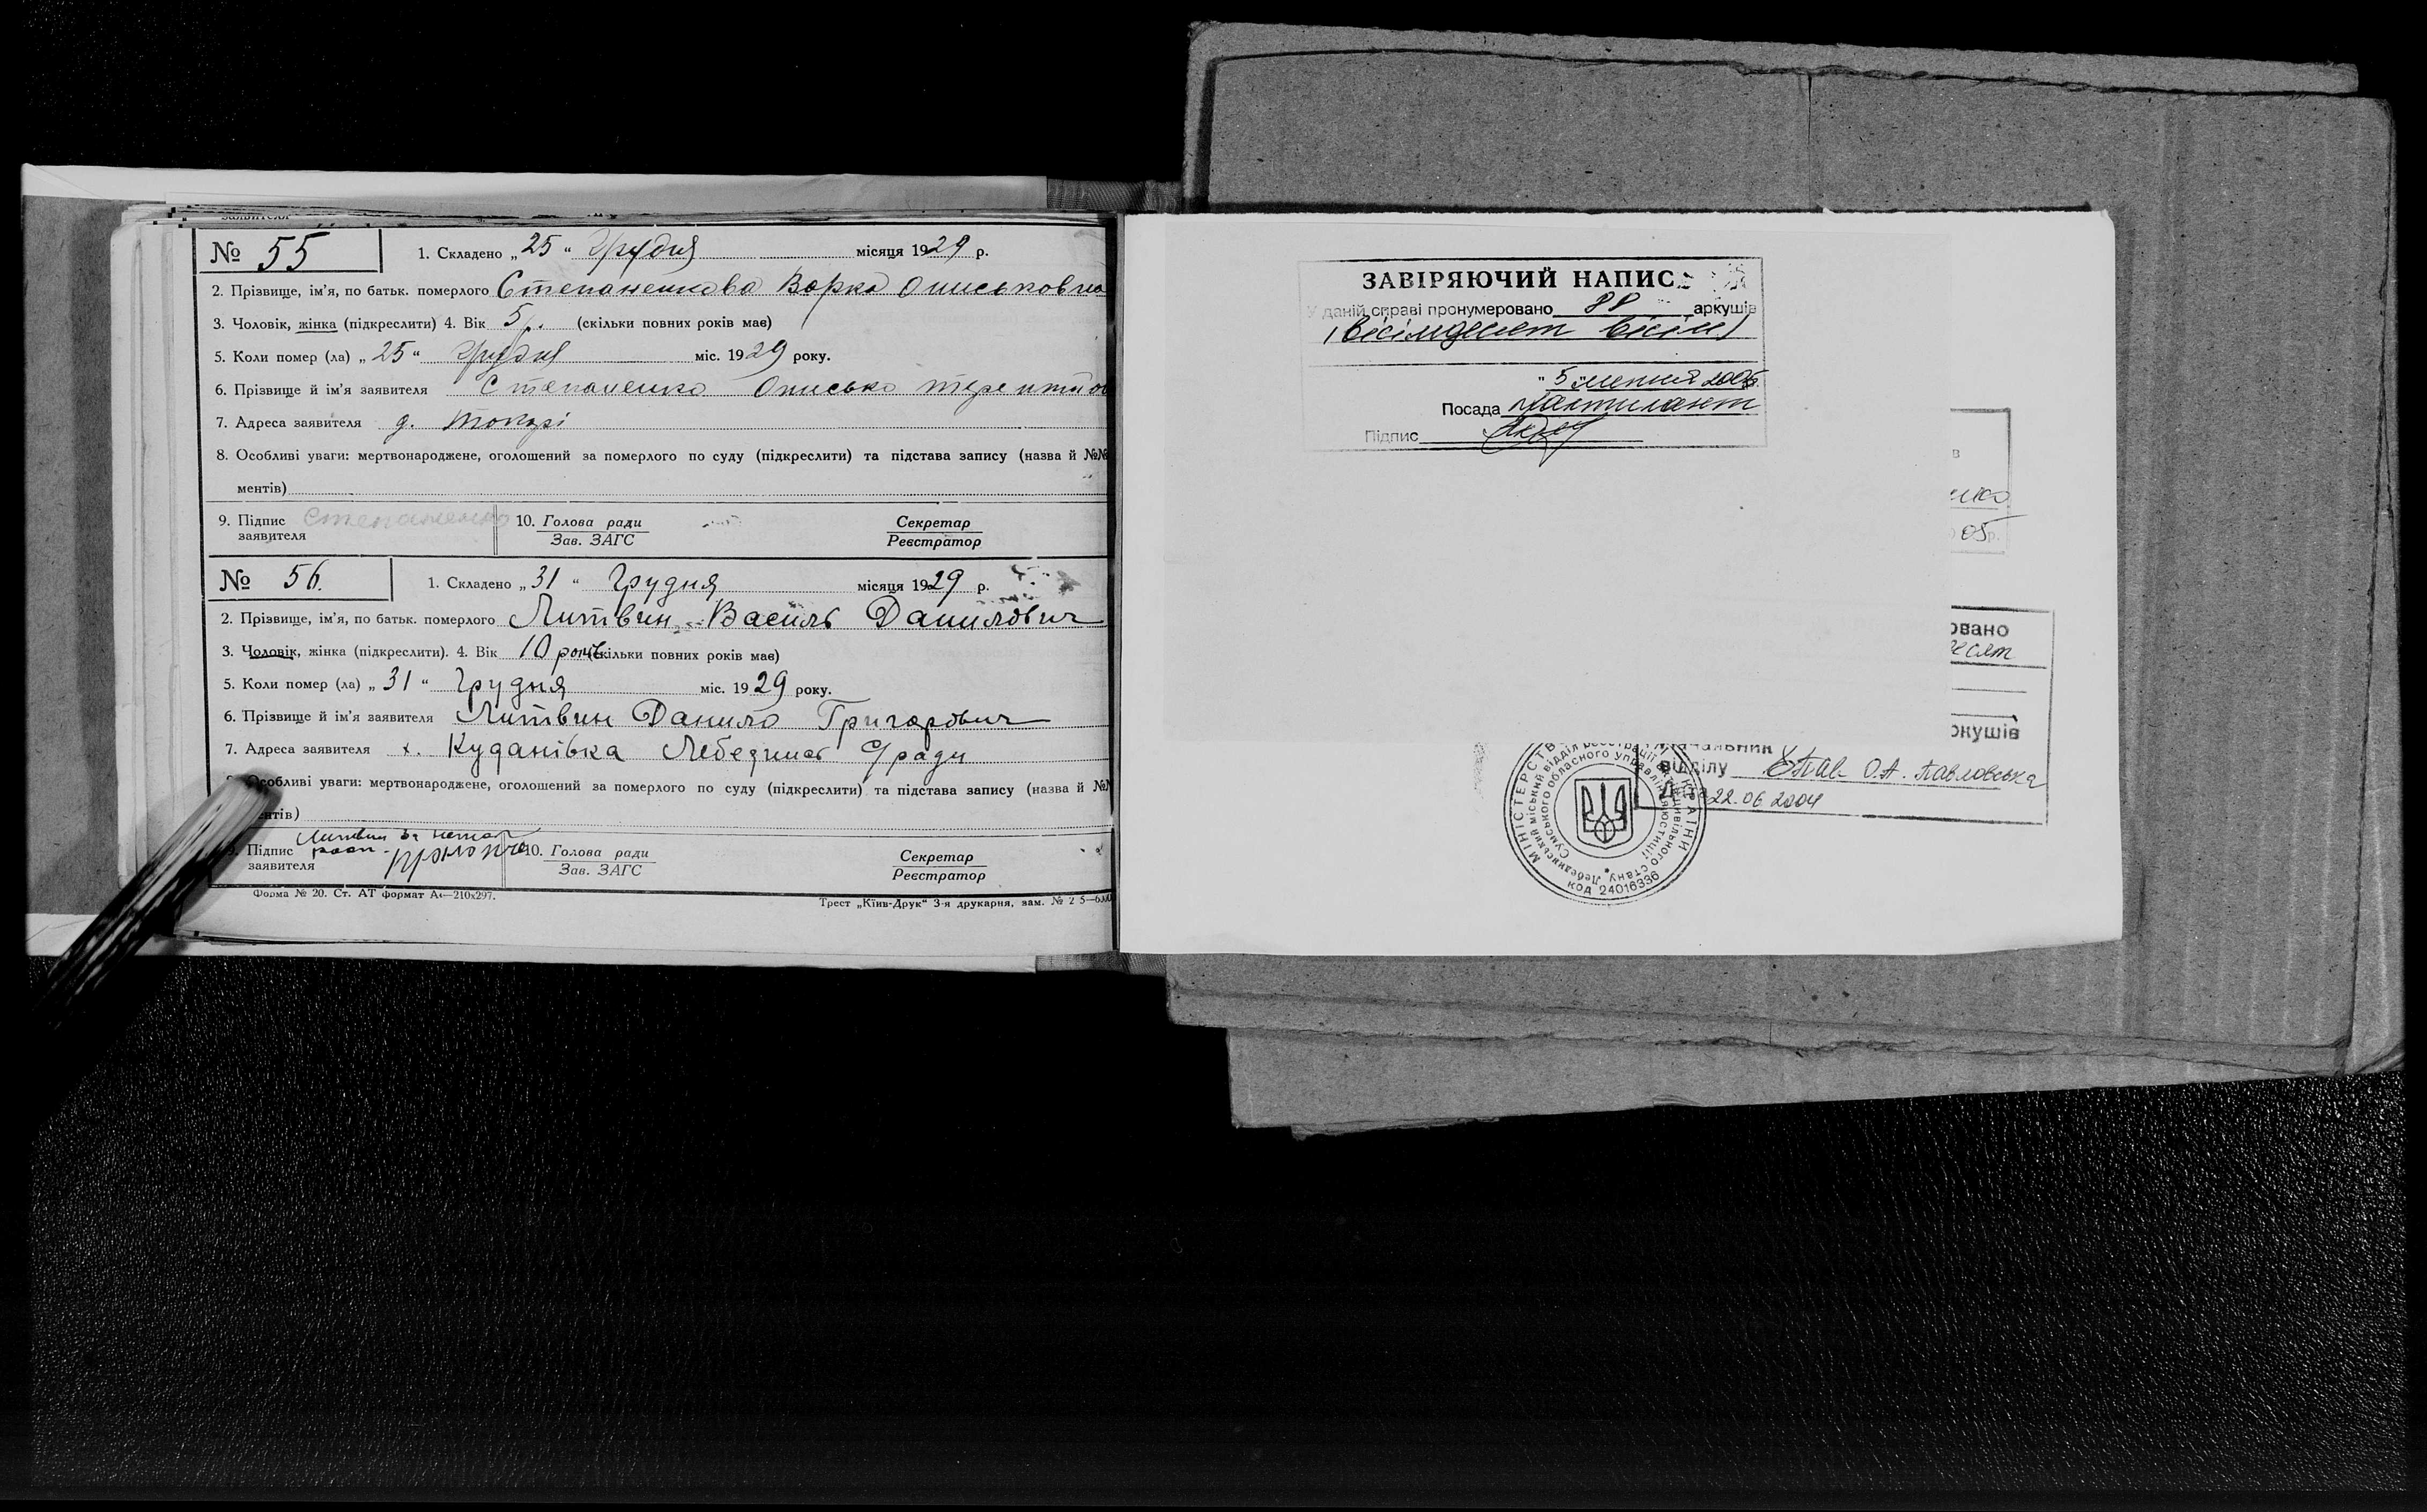 № 55 1. Складено „25“ Грудня місяця 1929 р.
2. Прізвище, ім'я, по батьк. померлого Степаненкова Варка Описьковна
3. Чоловік, жінка (підкреслити) 4. Вік 5 р. (скільки повних років має)
5. Коли помер (ла) „25“ Грудня міс. 1929 року.
6. Прізвище й ім'я заявителя СтепаненкоОписько
7. Адреса заявителя
8. Особливі уваги: мертвонароджене, оголошений за померлого по суду (підкреслити) та підстава запису (назва й №№
ментів)
9. Підпис Степаненко 10. Голова ради Секретар
заявителя Зав. ЗАГС Реєстратор
№ 56. 1. Складено „31“ Грудня місяця 1929 р.
2. Прізвище, ім'я, по батьк. померлого Литвин Василь Данилович
3. Чоловік, жінка (підкреслити). 4. Вік 10 років (скільки повних років має)
5. Коли помер (ла) „31“ Грудня міс. 1929 року.
6. Прізвище й ім'я заявителя Литвин Данило Григорович
7. Адреса заявителя х. Куданівка С/ради
Особливі уваги: мертвонароджене, оголошений за померлого по суду (підкреслити) та підстава запису (назва й №№
ентів)
Підпис Литвин 10. Голова ради Секретар
заявителя Зав. ЗАГС Реєстратор
Форма № 20. Ст. АТ формат А4—210х297.
Трест „Київ-Друк“ 3-я друкарня, зам. №
ЗАВІРЯЮЧИЙ НАПИС
У даній справі пронумеровано 88 аркушів
(вісімдесят вісім)
"5" липня 2005
Посада
Підпис
05р.
овано
есят
ркушів
Начальник
відділу О.А. Павловська
Дата 22.06 2004
МІНІСТЕРСТВО ЮСТИЦІЇ УКРАЇНИ
Лебединський міський відділ реєстрації актів цивільного стану
Сумського обласного управління юстиції
КОД 24016336